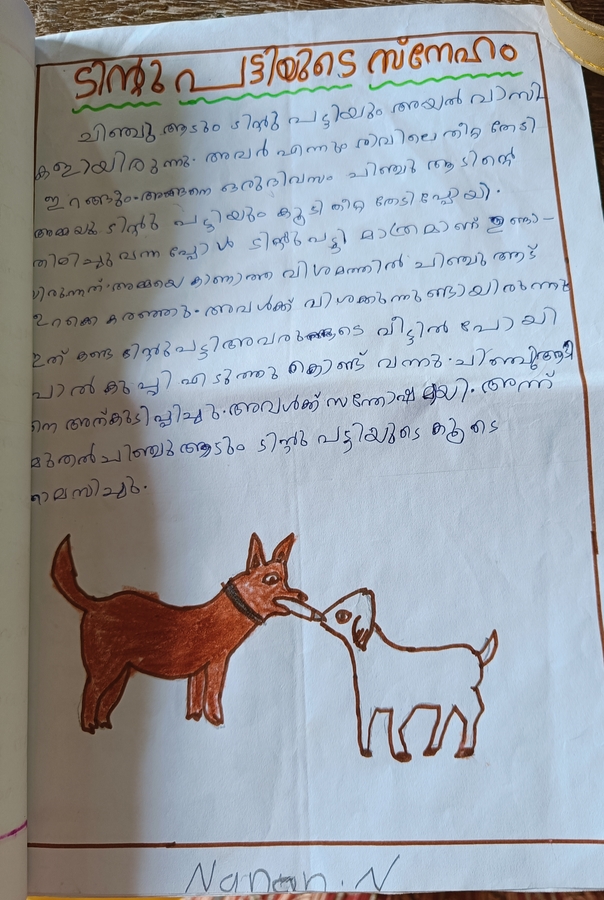 ടിന്റു പട്ടിയുടെ സ്നേഹം
ചിഞ്ചു ആടും ടിന്റു പട്ടിയും അയൽ വാസി
കളായിരുന്നു. അവർ എന്നും രാവിലെ തീറ്റ തേടി
ഇറങ്ങും. അങ്ങനെ ഒരുദിവസം ചിഞ്ചു ആടിന്റെ
അമ്മയും ടിന്റു പട്ടിയും കൂടി തീറ്റ തേടി പ്പോയി.
തിരിച്ചു വന്ന പ്പോൾ ടിന്റു പട്ടി മാത്രമാണ് ഉണ്ടാ-
യിരുന്നത്. അമ്മയെ കാണാത്ത വിശമത്തിൽ ചിഞ്ചു ആട്
ഉറക്കെ കരഞ്ഞു. അവൾക്ക് വിശക്കുന്നുണ്ടായിരുന്നു
ഇത് കണ്ട ടിന്റുപട്ടി അവരുടെ വീട്ടിൽ പോയി
പാൽ കുപ്പി എടുത്തു കൊണ്ട് വന്നു. ചിഞ്ചുആടി
നെ അത്കുടിപ്പിച്ചു. അവൾക്ക് സന്തോഷമായി. അന്ന്
മുതൽ ചിഞ്ചു ആടും ടിന്റു പട്ടിയുടെ കൂടെ
താമസിച്ചു.
Nanan. N